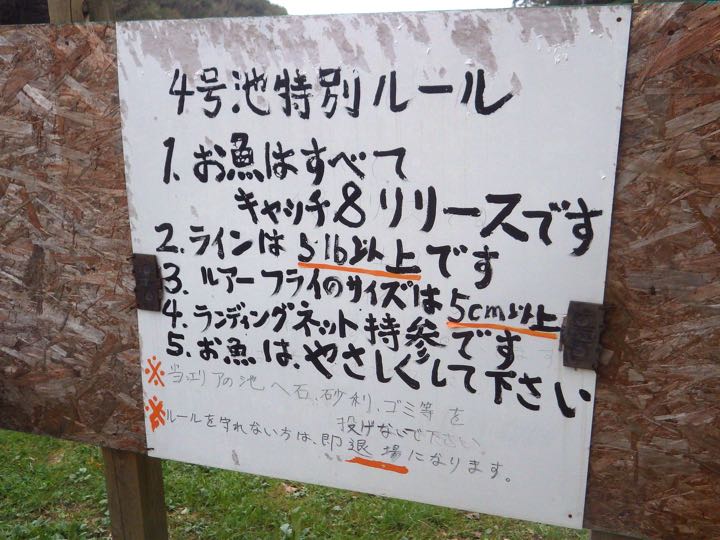 4号池特別ルール
1. お魚はすべて
キャッチ&リリースです
2. ラインは 5lb以上です
3. ルアーフライのサイズは 5cm以上
4. ランディングネット持参です
5. お魚は、やさしくして下さい
※当エリアの池へ石、砂利、ゴミ等を
投げないで下さい
※ルールを守れない方は、即退場になります。